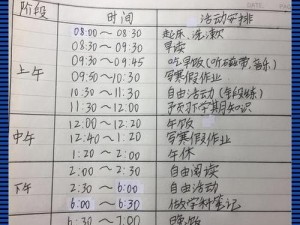 阶段 时间 活动安排
08:00～08:30 起床、洗漱
08:30～09:30 早读
09:30～09:45 吃早饭(听磁带、音乐)
上午 09:50～10:30 写寒假作业
10:30～11:30 自由活动
11:30～12:00 预习下学期知识
12:00～12:20 午饭
中午 12:40～1:20 写寒假作业
1:20～2:00 午休
2:00～2:30 自由阅读
下午 2:30～6:00 自由活动
6:00～6:30 做学科笔记
6:30～7:00 晚饭